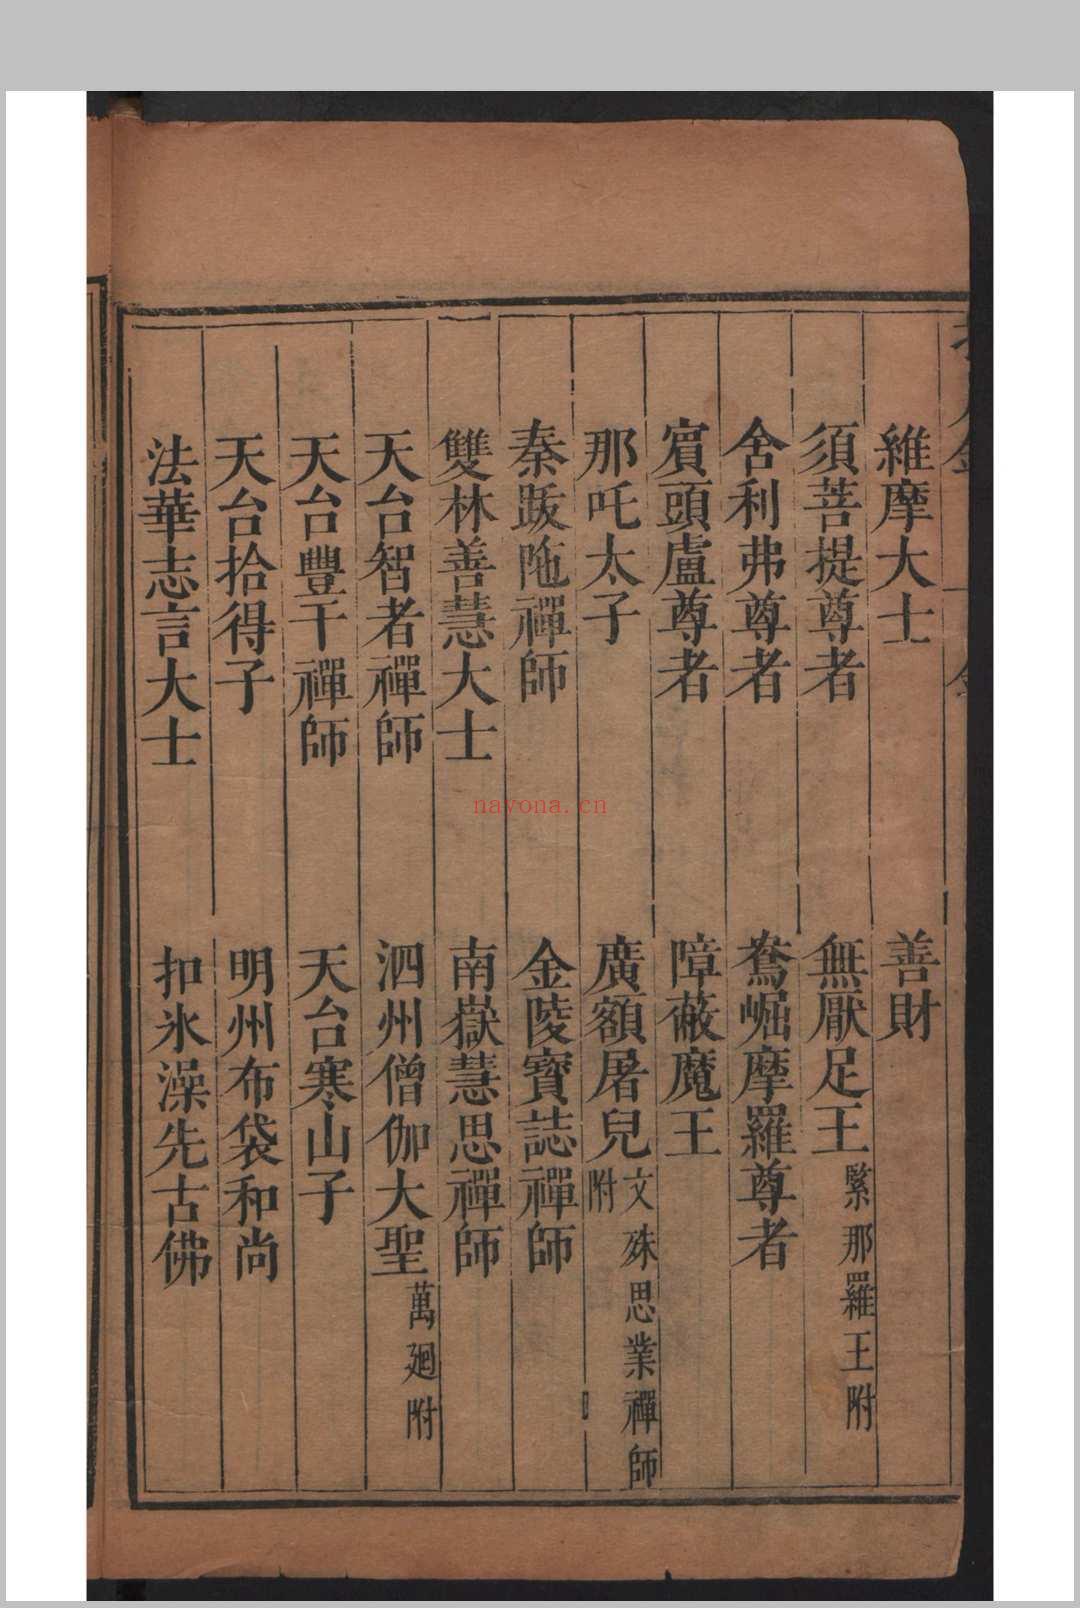 維摩大士 善財
須菩提尊者 無厭足王 緊那羅王附
舍利弗尊者 鴦崛摩羅尊者
賔頭盧尊者 障蔽魔王
那吒太子 廣額屠兒 文殊思業禪師附
秦跋陁禪師 金陵寶誌禪師
雙林善慧大士 南嶽慧思禪師
天台智者禪師 泗州僧伽大聖 萬廻附
天台豐干禪師 天台寒山子
天台拾得子 明州布袋和尚
法華志言大士 扣氷澡先古佛
nayona.cn